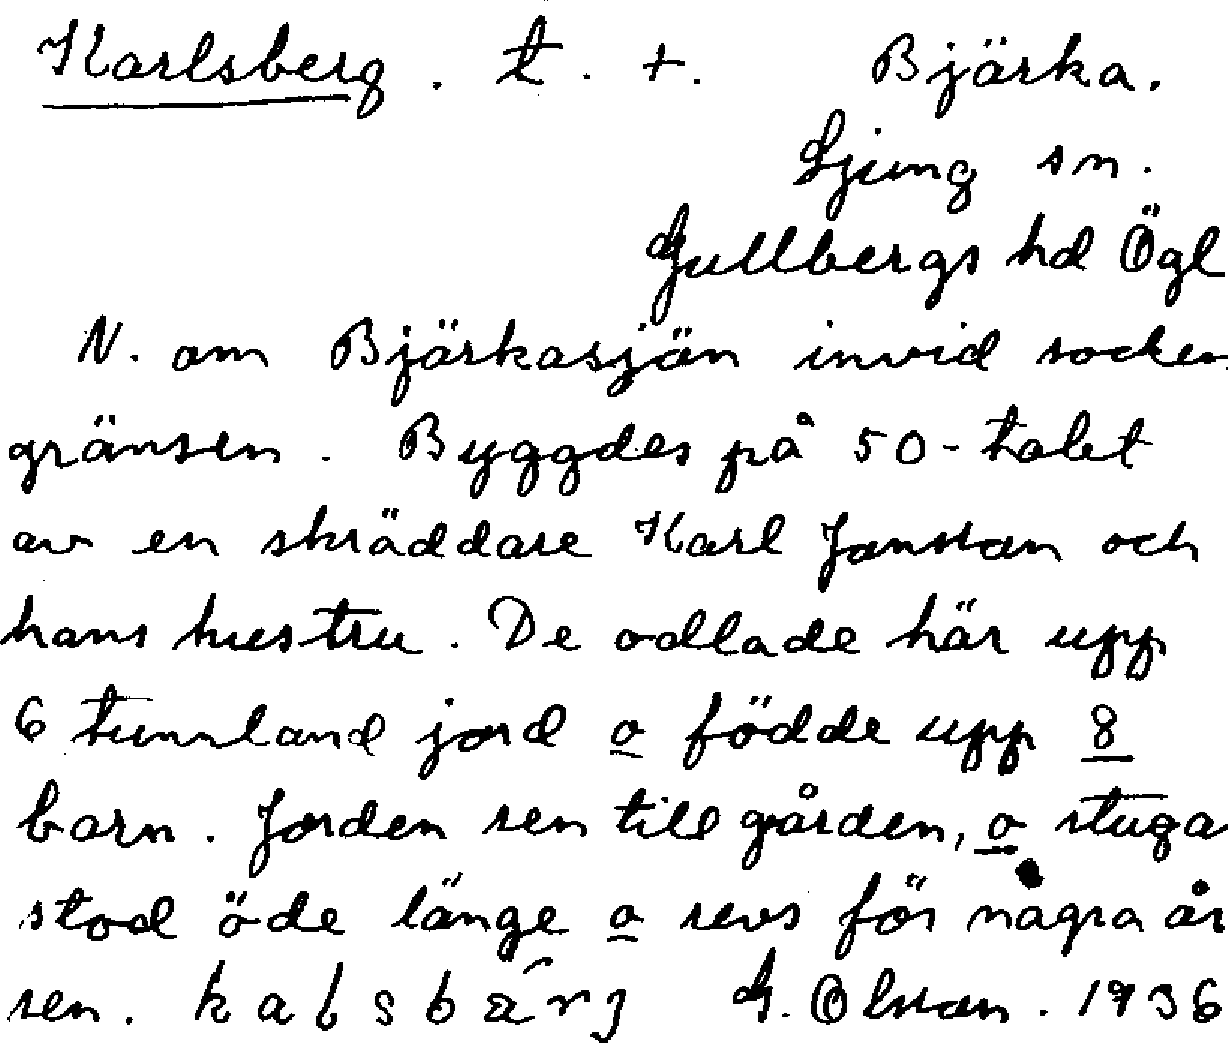 Karlsberg. t. +. Bjärka.
Ljung sn.
Gullbergs hd Ögl
N. om Bjärkasjön invid socken
gränsen. Byggdes på 50-talet
av en skräddare Karl Jonsson och
hans hustru. De odlade här upp
6 tunnland jord o födde upp 8
barn. Jorden sen till gården, o stuga
stod öde länge o revs för några år
sen. G. Olsson. 1936